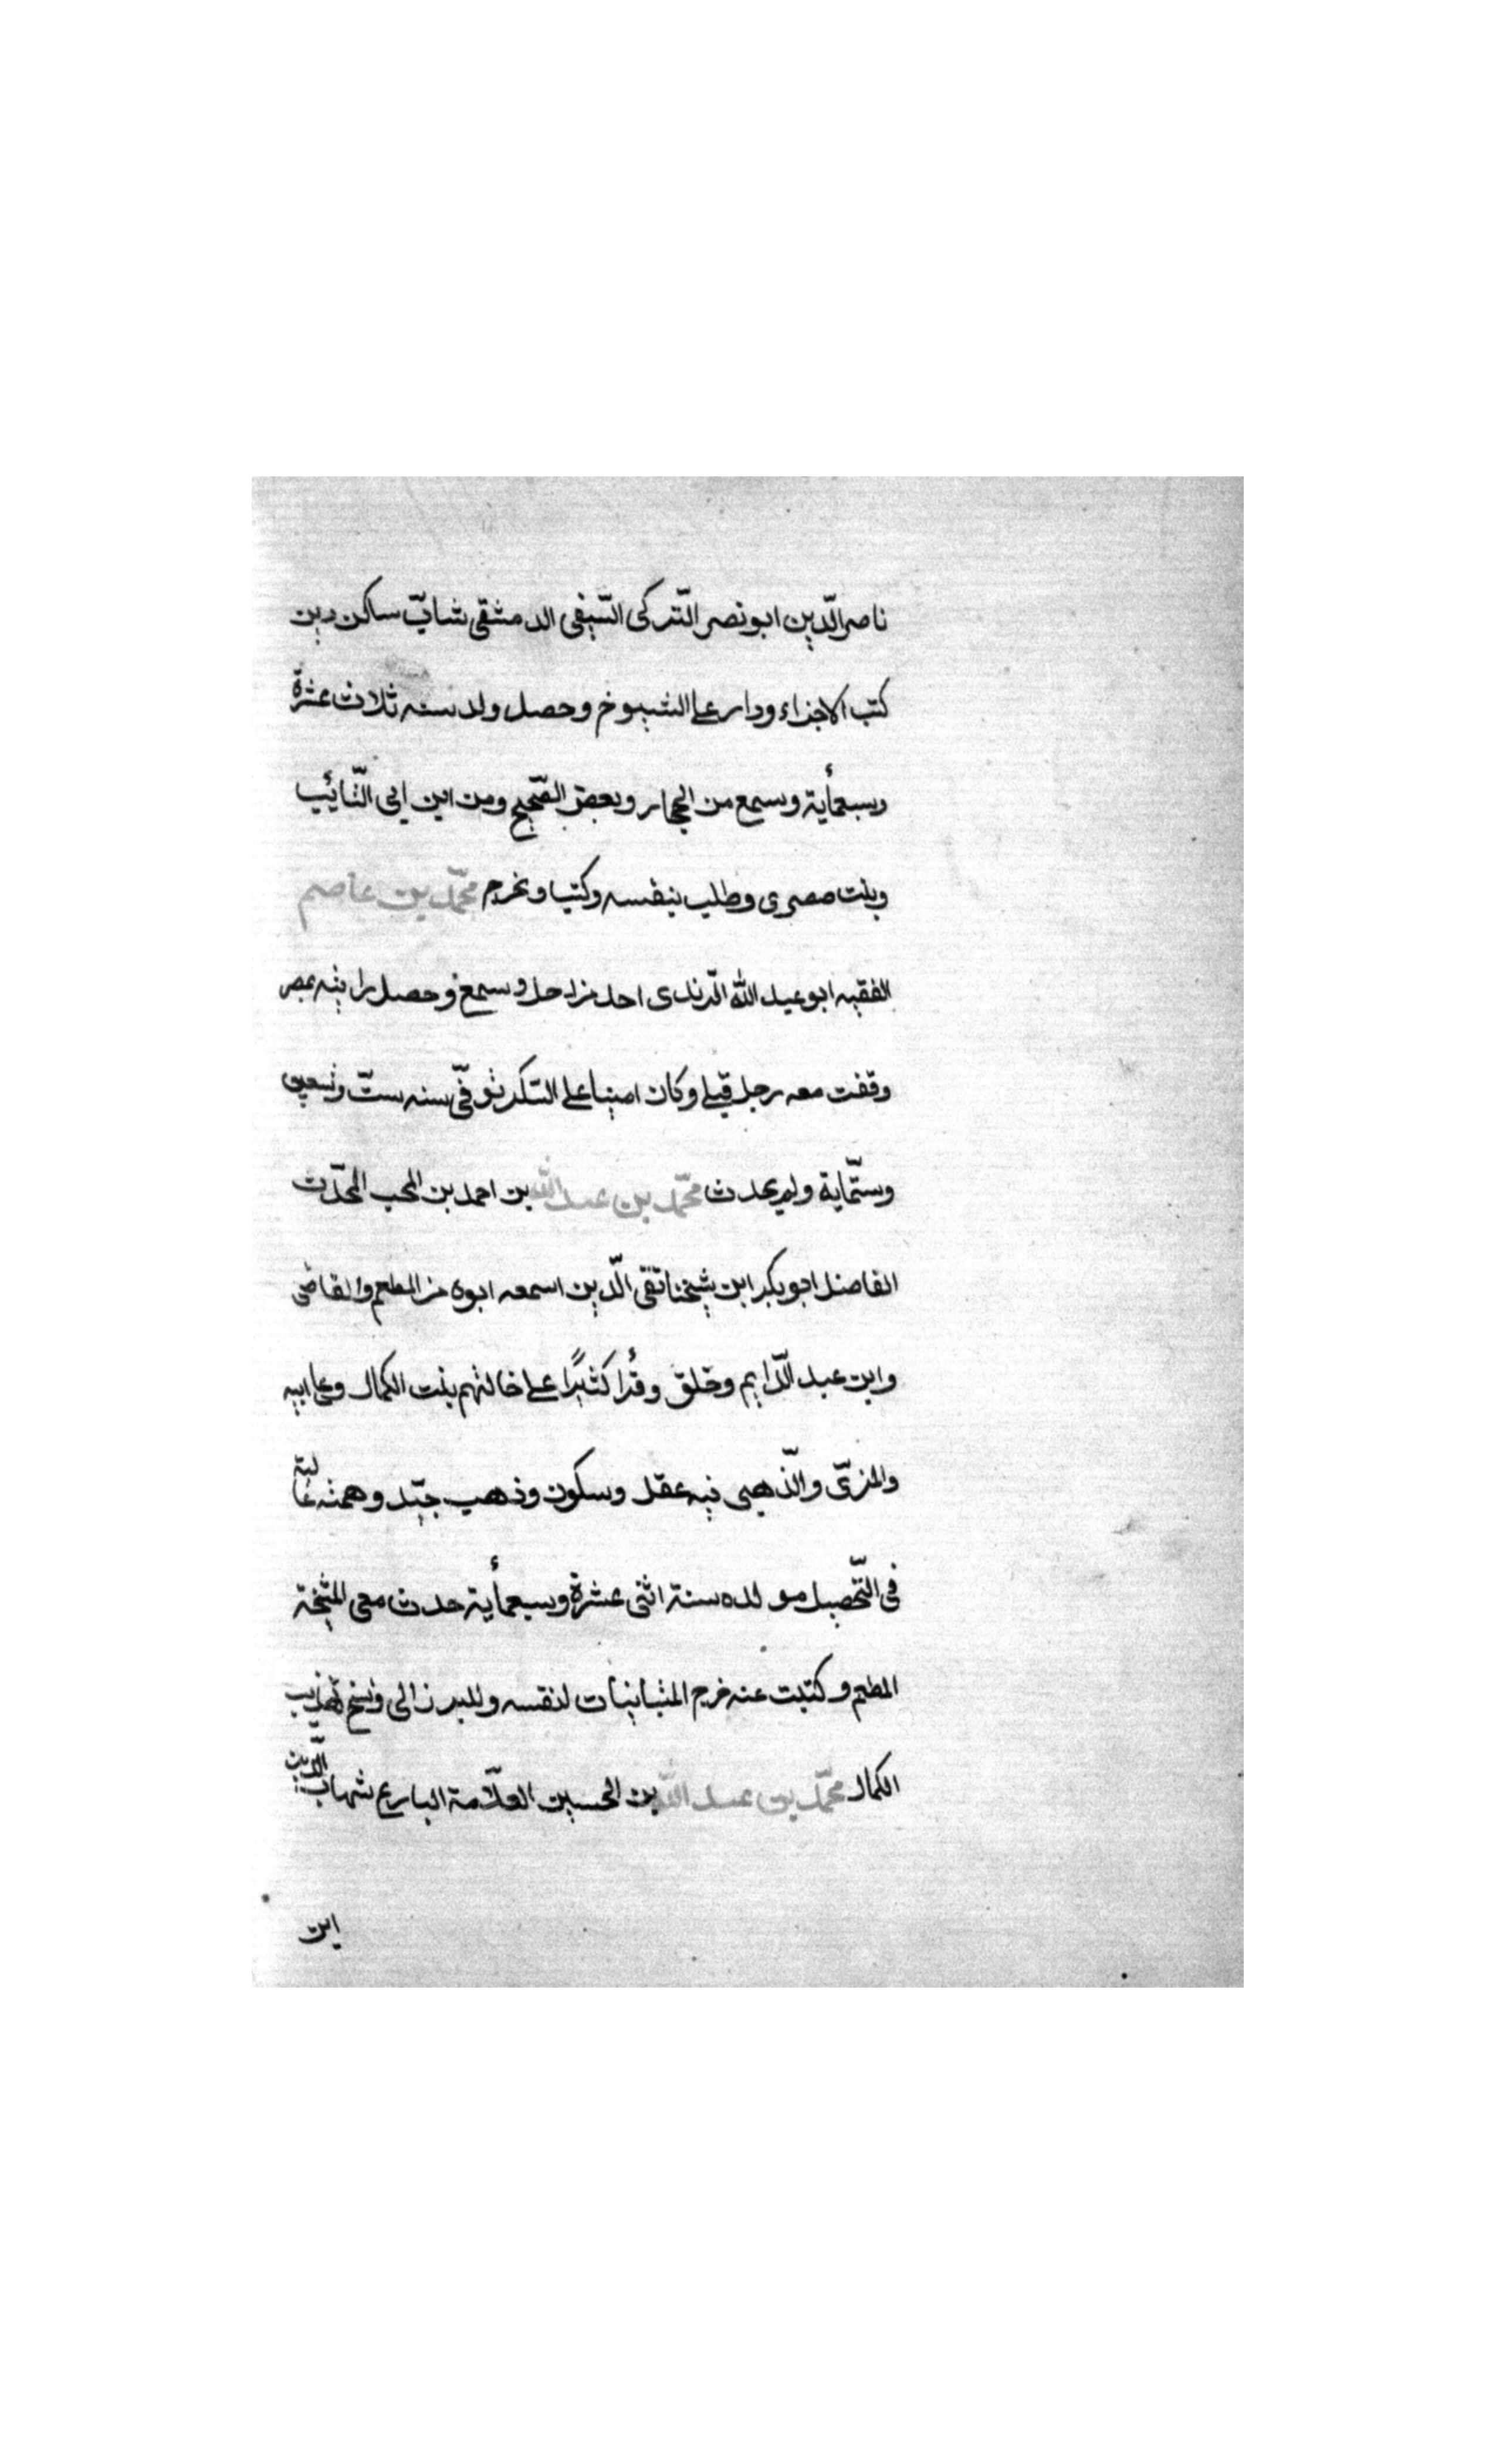 ناصر الدّين ابو نصر التّركى السّيفى الدمشقى شابّ ساكن دين
كتب الاجزاء ودار على الشيوخ وحصل ولد سنه ثلاث عشرة
وسبعمأية وسمع من الحجار وبعض الصّحيح ومن ابن ابى التّائيب
وبنت صصرى وطلب بنفسه وكتب وتخرج محمّد بن عاصم
الفقيه ابو عبد الله الرّندى احد من رحل وسمع وحصل رايته بمصر
وقفت معه رجل قبلى وكان امينا على السّكر توفّى سنه ستّ وتسعين
وستّماية ولم يحدث محمّد بن عبد الله بن احمد بن المحب المحدّث
الفاضل ابو بكر ابن شيخنا تقى الدّين اسمعه ابوه من المطعم والقاضى
وابن عبد الدّايم وخلق وقرأ كثيرًا على خالتهم بنت الكمال وعلى ابيه
والمزىّ والذّهبى فيه عقل وسكون وذهب جيّد وهمته عالية
فى التّحصيل مولده سنة اثنى عشرة وسبعمأية حدث معى المشيخة
المطعم وكتبت عنه خرج المتباينات لنفسه وللبرزالى ونسخ تهذيب
الكمال محمّد بن عبد الله بن الحسين العلّامة البارع شهاب الدّين
ابن